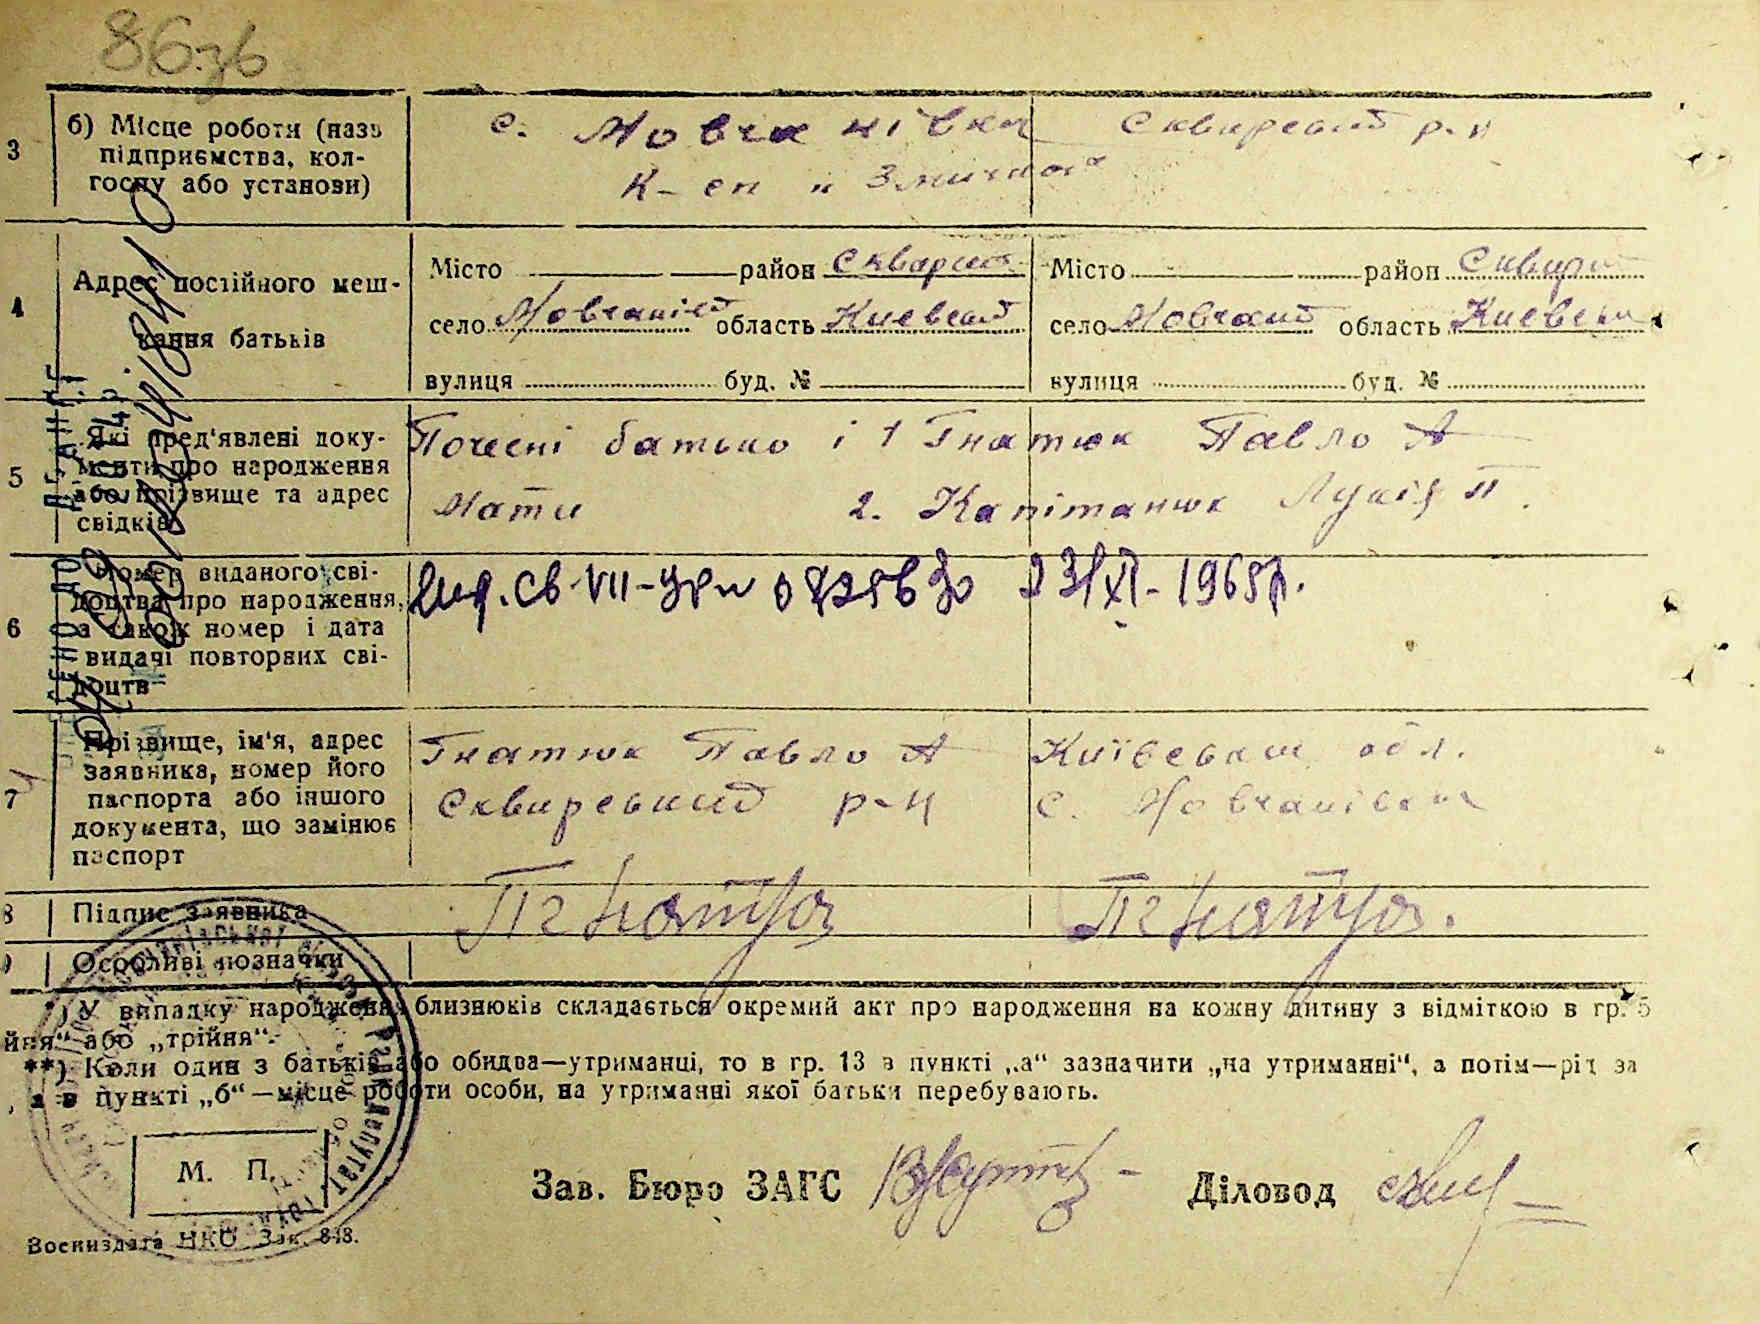 86зв
3 б) Місце роботи (назв
підприємства, кол-
госпу або установи)
с. Мовчанівка Сквирський р-н
К-сп „Змичка“
4 Адрес постійного меш-
кання батьків
Місто район Сквирськ Місто район Сквирс
село Мовчанівк область Киевськ село Мовчан область Киевськ
вулиця буд. № вулиця буд. №
5 Які пред'явлені доку-
менти про народження
або прізвище та адрес
свідків
батько і 1 Гнатюк Павло А
Мати 2. Капітанюк Лукія П.
6 Номер виданого сві-
доцтва про народження,
а також номер і дата
видачі повторних сві-
доцтв
св. VII- 23/XI- 1965р.
7 Прізвище, ім'я, адрес
заявника, номер його
паспорта або іншого
документа, що замінює
паспорт
Гнатюк Павло А Київська обл.
Сквирський р-н с. Мовчанівка
8 Підпис заявника
9 Особливі позначки
*) У випадку народження близнюків складається окремий акт про народження на кожну дитину з відміткою в гр. 5
йня“ або „трійня“.
**) Коли один з батьків або обидва—утриманці, то в гр. 13 в пункті „а“ зазначити „на утриманні“, а потім—рід за
, а в пункті „б“—місце роботи особи, на утриманні якої батьки перебувають.
М. П.
Зав. Бюро ЗАГС Діловод
Воениздата НКО Зак. 848.